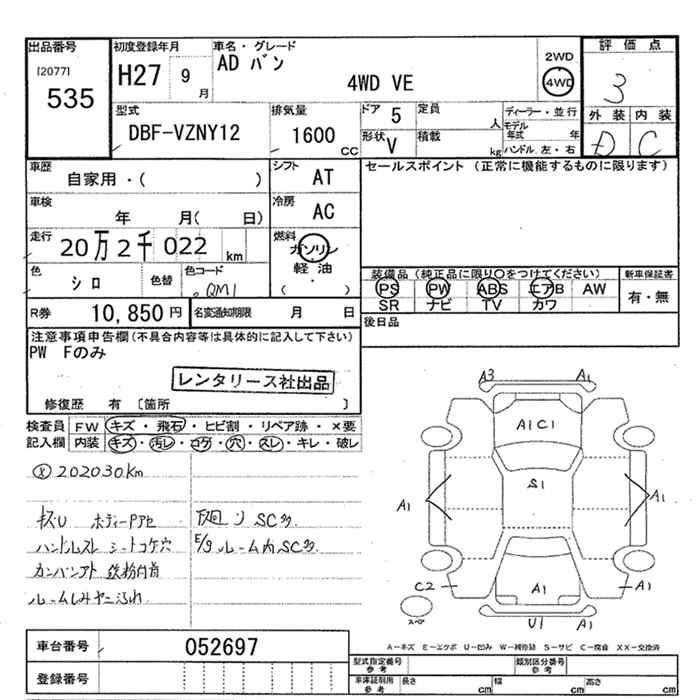 出品番号 初度登録年月 車名・グレード 2WD 評価点
[2077] H27 9月 AD バン 4WD 3
535 4WD VE
型式 排気量 ドア 5 定員 人 ディーラー・並行 外装 内装
DBF-VZNY12 1600 CC 形状 V 積載 kg モデル年式 年 D C
ハンドル 左・右
車歴 シフト セールスポイント (正常に機能するものに限ります)
自家用・( ) AT
車検 冷房
年 月( 日) AC
走行 燃料
20万2千022 km ガソリン
軽油
( )
色 シロ 色替 色コード QM1
装備品(純正品に限り○をつけてください) 新車保証書
PS PW ABS エアB AW 有・無
SR ナビ TV カワ
R券 10,850円 名変通知期限 月 日
後日品
注意事項申告欄(不具合内容等は具体的に記入して下さい)
PW Fのみ
レンタリース社出品
修復歴 有 [箇所 ]
検査員 FW キズ・飛石・ヒビ割・リペア跡・×要
記入欄 内装 キズ・汚レ・コゲ・穴・スレ・キレ・破レ
202030km
キズU ボディーPアセ 下廻り SC多
ハンドルスレ シートコゲ穴 E/g ルーム内SC多
カンバンアト 鉄粉内首
ルームしみヤニ汚れ
A3 A1
A1C1
S1
A1 A1
C2 A1 A1
U1 A1
スペア
A-キズ E-エクボ U-凹み W-補修跡 S-サビ C-腐食 XX-交換済
車台番号 052697
登録番号
型式指定番号 参考 類別区分番号 参考
車庫証明用 参考 長さ cm 幅 cm 高さ cm